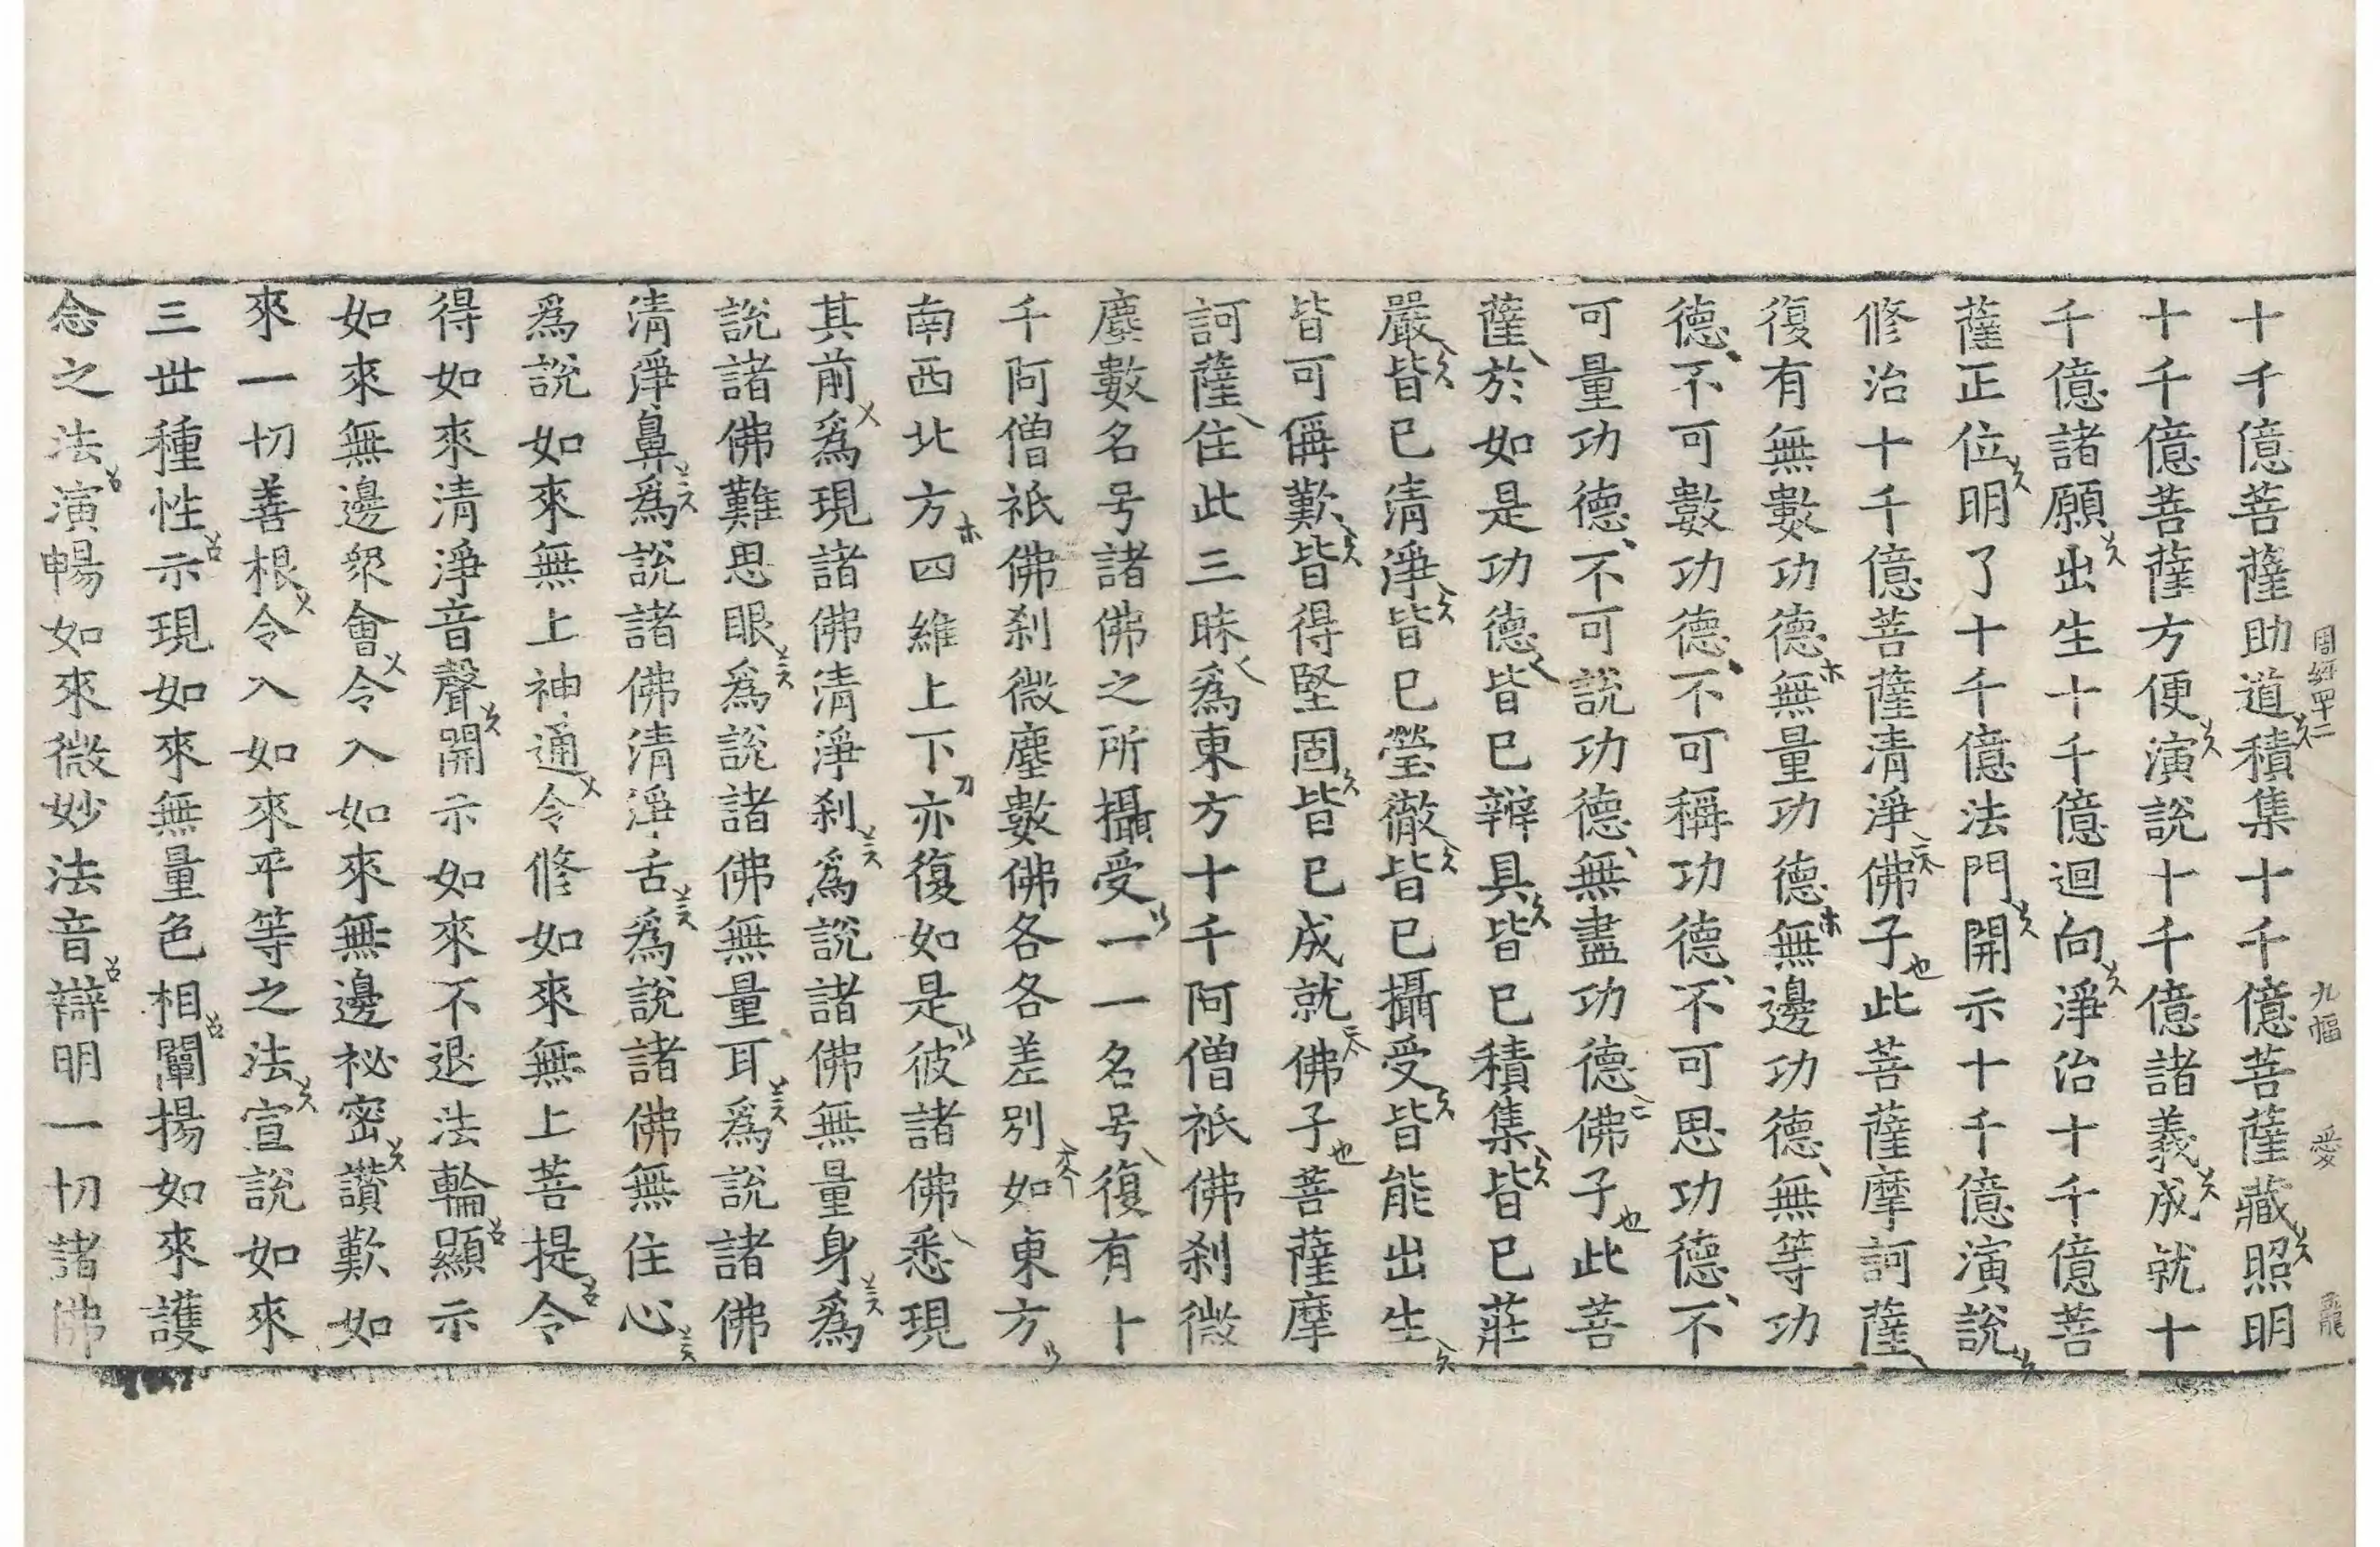 周經四十二 九幅 愛 龍
十千億菩薩助道積集十千億菩薩藏照明
十千億菩薩方便演說十千億諸義成就十
千億諸願出生十千億迴向淨治十千億菩
薩正位明了十千億法門開示十千億演說
修治十千億菩薩清淨佛子也此菩薩摩訶薩
復有無數功德無量功德無邊功德無等功
德不可數功德不可稱功德不可思功德不
可量功德不可說功德無盡功德佛子也此菩
薩於如是功德皆已辦具皆已積集皆已莊
嚴皆已清淨皆已瑩徹皆已攝受皆能出生
皆可稱歎皆得堅固皆已成就佛子也菩薩摩
訶薩住此三昧爲東方十千阿僧祇佛刹微
塵數名号諸佛之所攝受一一名号復有十
千阿僧祇佛刹微塵數佛各各差別如東方
南西北方四維上下亦復如是彼諸佛悉現
其前爲現諸佛清淨刹爲說諸佛無量身爲
說諸佛難思眼爲說諸佛無量耳爲說諸佛
清淨鼻爲說諸佛清淨舌爲說諸佛無住心
爲說如來無上神通令修如來無上菩提令
得如來清淨音聲開示如來不退法輪顯示
如來無邊衆會令入如來無邊祕密讚歎如
來一切善根令入如來平等之法宣說如來
三世種性示現如來無量色相闡揚如來護
念之法演暢如來微妙法音辯明一切諸佛